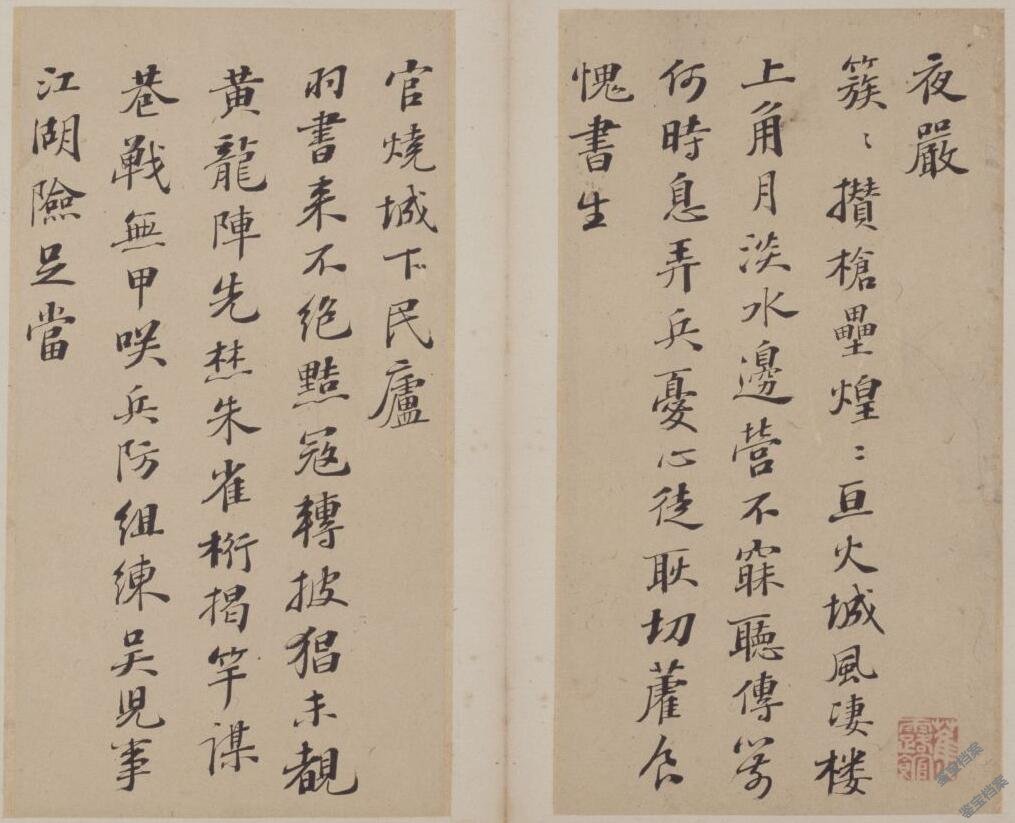 夜嚴
簇〻攢槍壘煌〻亘火城風淒楼
上角月淡水邊營不寐聽傳箭
何時息弄兵憂心徒耿切藿食
愧書生
官燒城下民廬
羽書来不绝黠寇轉披猖未覩
黄龍陣先焚朱雀桁揭竿謀
巷戰無甲咲兵防組練吴児事
江湖險足當
鉴宝档案
鉴宝档案